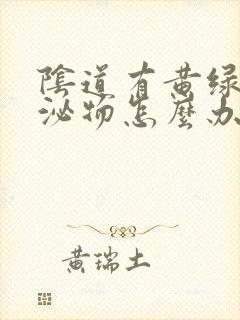 陰道有黄绿
泌物怎麼办
黄瑞土